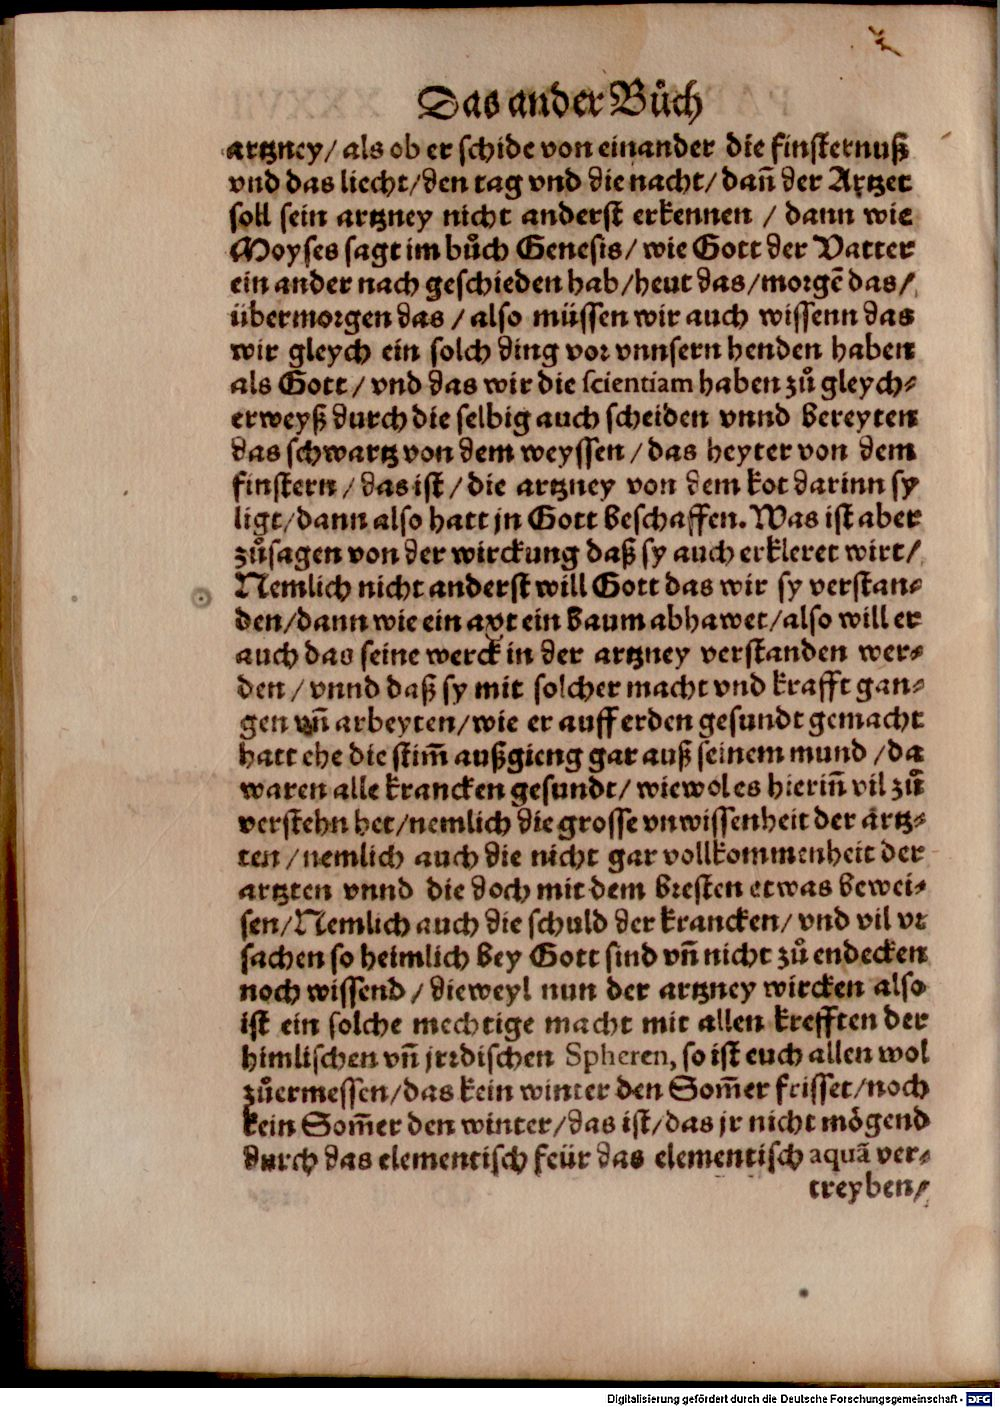 Das ander Bůch
artzney/ als ob er schide von einander die finsternuß
vnd das liecht/den tag vnd die nacht/ dañ der Artzet
soll sein artzney nicht anderst erkennen / dann wie
Moyses sagt im bůch Genesis/ wie Gott der Vatter
ein ander nach geschieden hab/heut das/morgē das/
übermorgen das / also müssen wir auch wissenn das
wir gleych ein solch ding vor vnnsern henden haben
als Gott/ vnd das wir die scientiam haben zů gleych-
erweyß durch die selbig auch scheiden vnnd bereyten
das schwartz von dem weyssen / das heyter von dem
finstern / das ist / die artzney von dem kot darinn sy
ligt/dann also hatt jn Gott beschaffen. Was ist aber
zůsagen von der wirckung daß sy auch erkleret wirt/
Nemlich nicht anderst will Gott das wir sy verstan-
den/dann wie ein axt ein baum abhawet/also will er
auch das seine werck in der artzney verstanden wer-
den / vnnd daß sy mit solcher macht vnd krafft gan-
gen vñ arbeyten/wie er auff erden gesundt gemacht
hatt ehe die stim̃ außgieng gar auß seinem mund /da
waren alle krancken gesundt/ wiewol es hieriñ vil zů
verstehn het/nemlich die grosse vnwissenheit der ärtz-
ten /nemlich auch die nicht gar vollkommenheit der
artzten vnnd die doch mit dem bresten etwas bewei-
sen/Nemlich auch die schuld der krancken/ vnd vil vr
sachen so heimlich bey Gott sind vñ nicht zů endecken
noch wissend / dieweyl nun der artzney wircken also
ist ein solche mechtige macht mit allen krefften der
himlischen vñ jrrdischen Spheren, so ist euch allen wol
zůermessen/das kein winter den Som̃er frisset/noch
kein Som̃er den winter/das ist/das jr nicht mögend
durch das elementisch feür das elementisch aquā ver-
treyben/
Digitalisierung gefördert durch die Deutsche Forschungsgemeinschaft - DFG